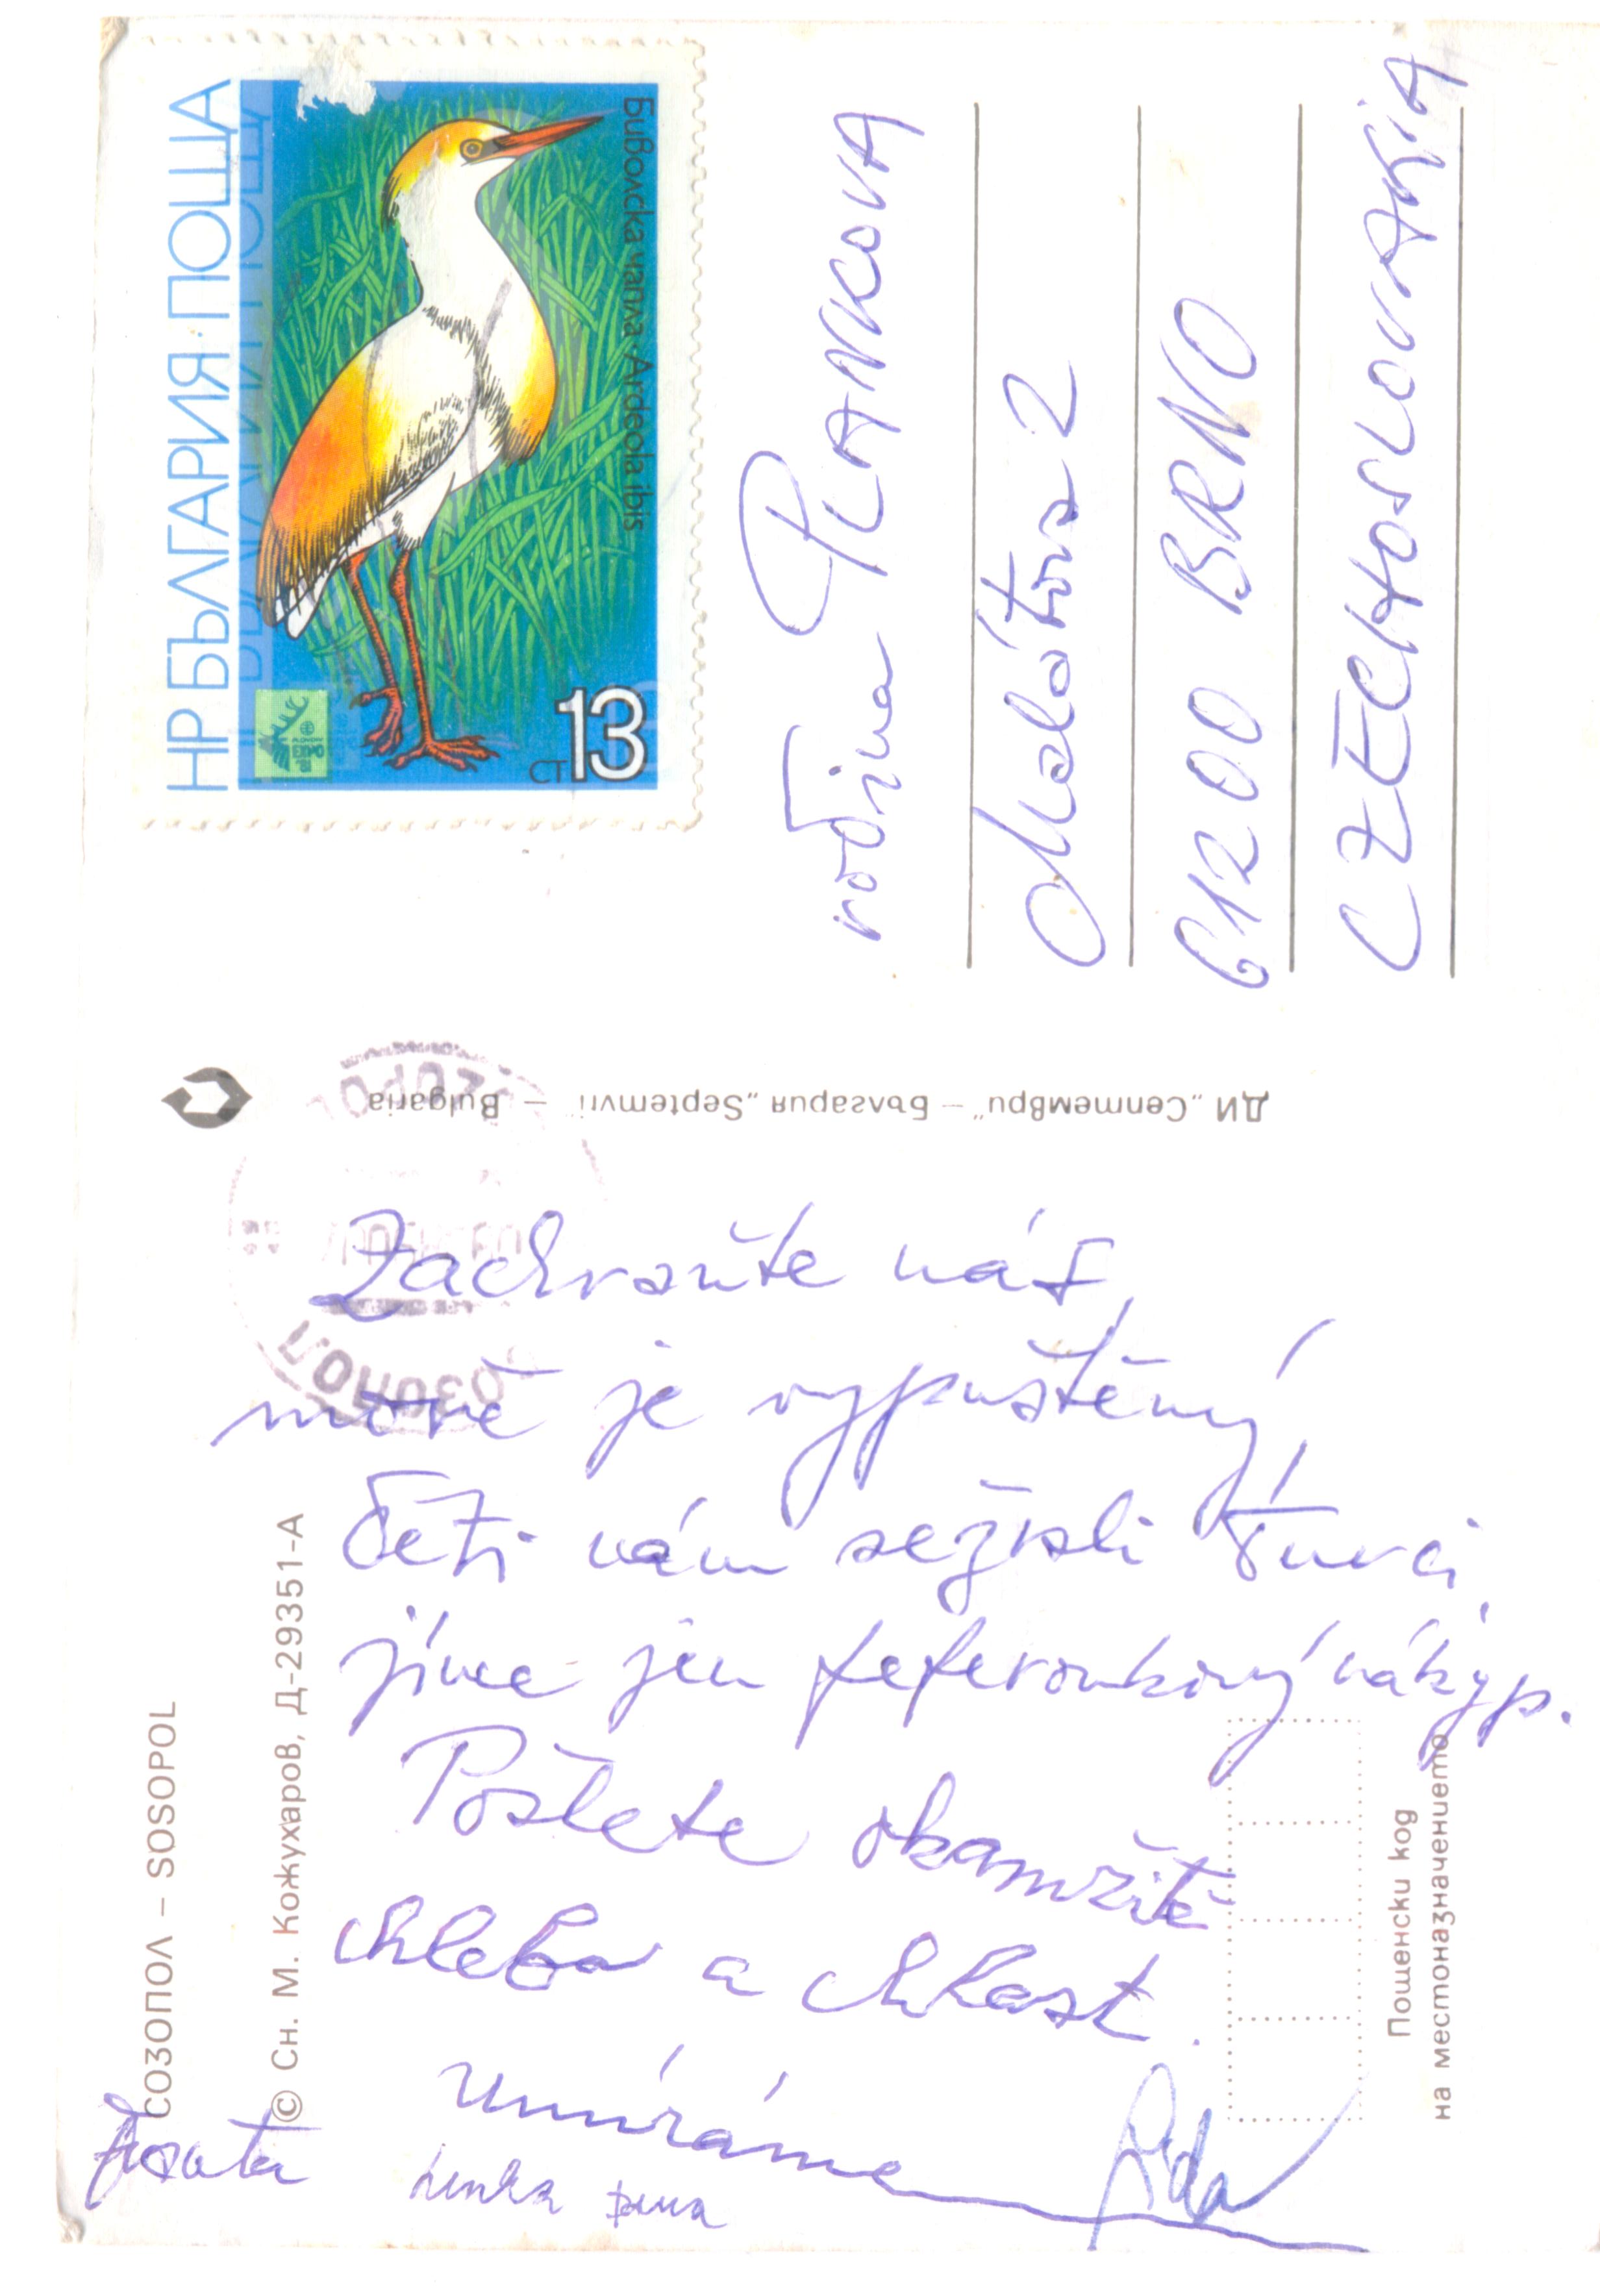 НР БЪЛГАРИЯ·ПОЩА
Биволска чапла·Ardeola ibis
СТ 13
rodina PLANKOVA
Malátova 2
612 00 BRNO
CZECHOSLOVAKIA
ДИ „Септември” – България „Septemvri” – Bulgaria
СОЗОПОЛ
Zachraňte nás,
moře je vypuštěný,
děti nám sežrali Turci,
jíme jen feferonkový nákyp.
Pošlete okamžitě
chleba a chlast.
umíráme
Lida
Lenka
СОЗОПОЛ – SOSOPOL
© Сн. М. Кожухаров, Д-29351-А
Пошенски код
на местоназначението